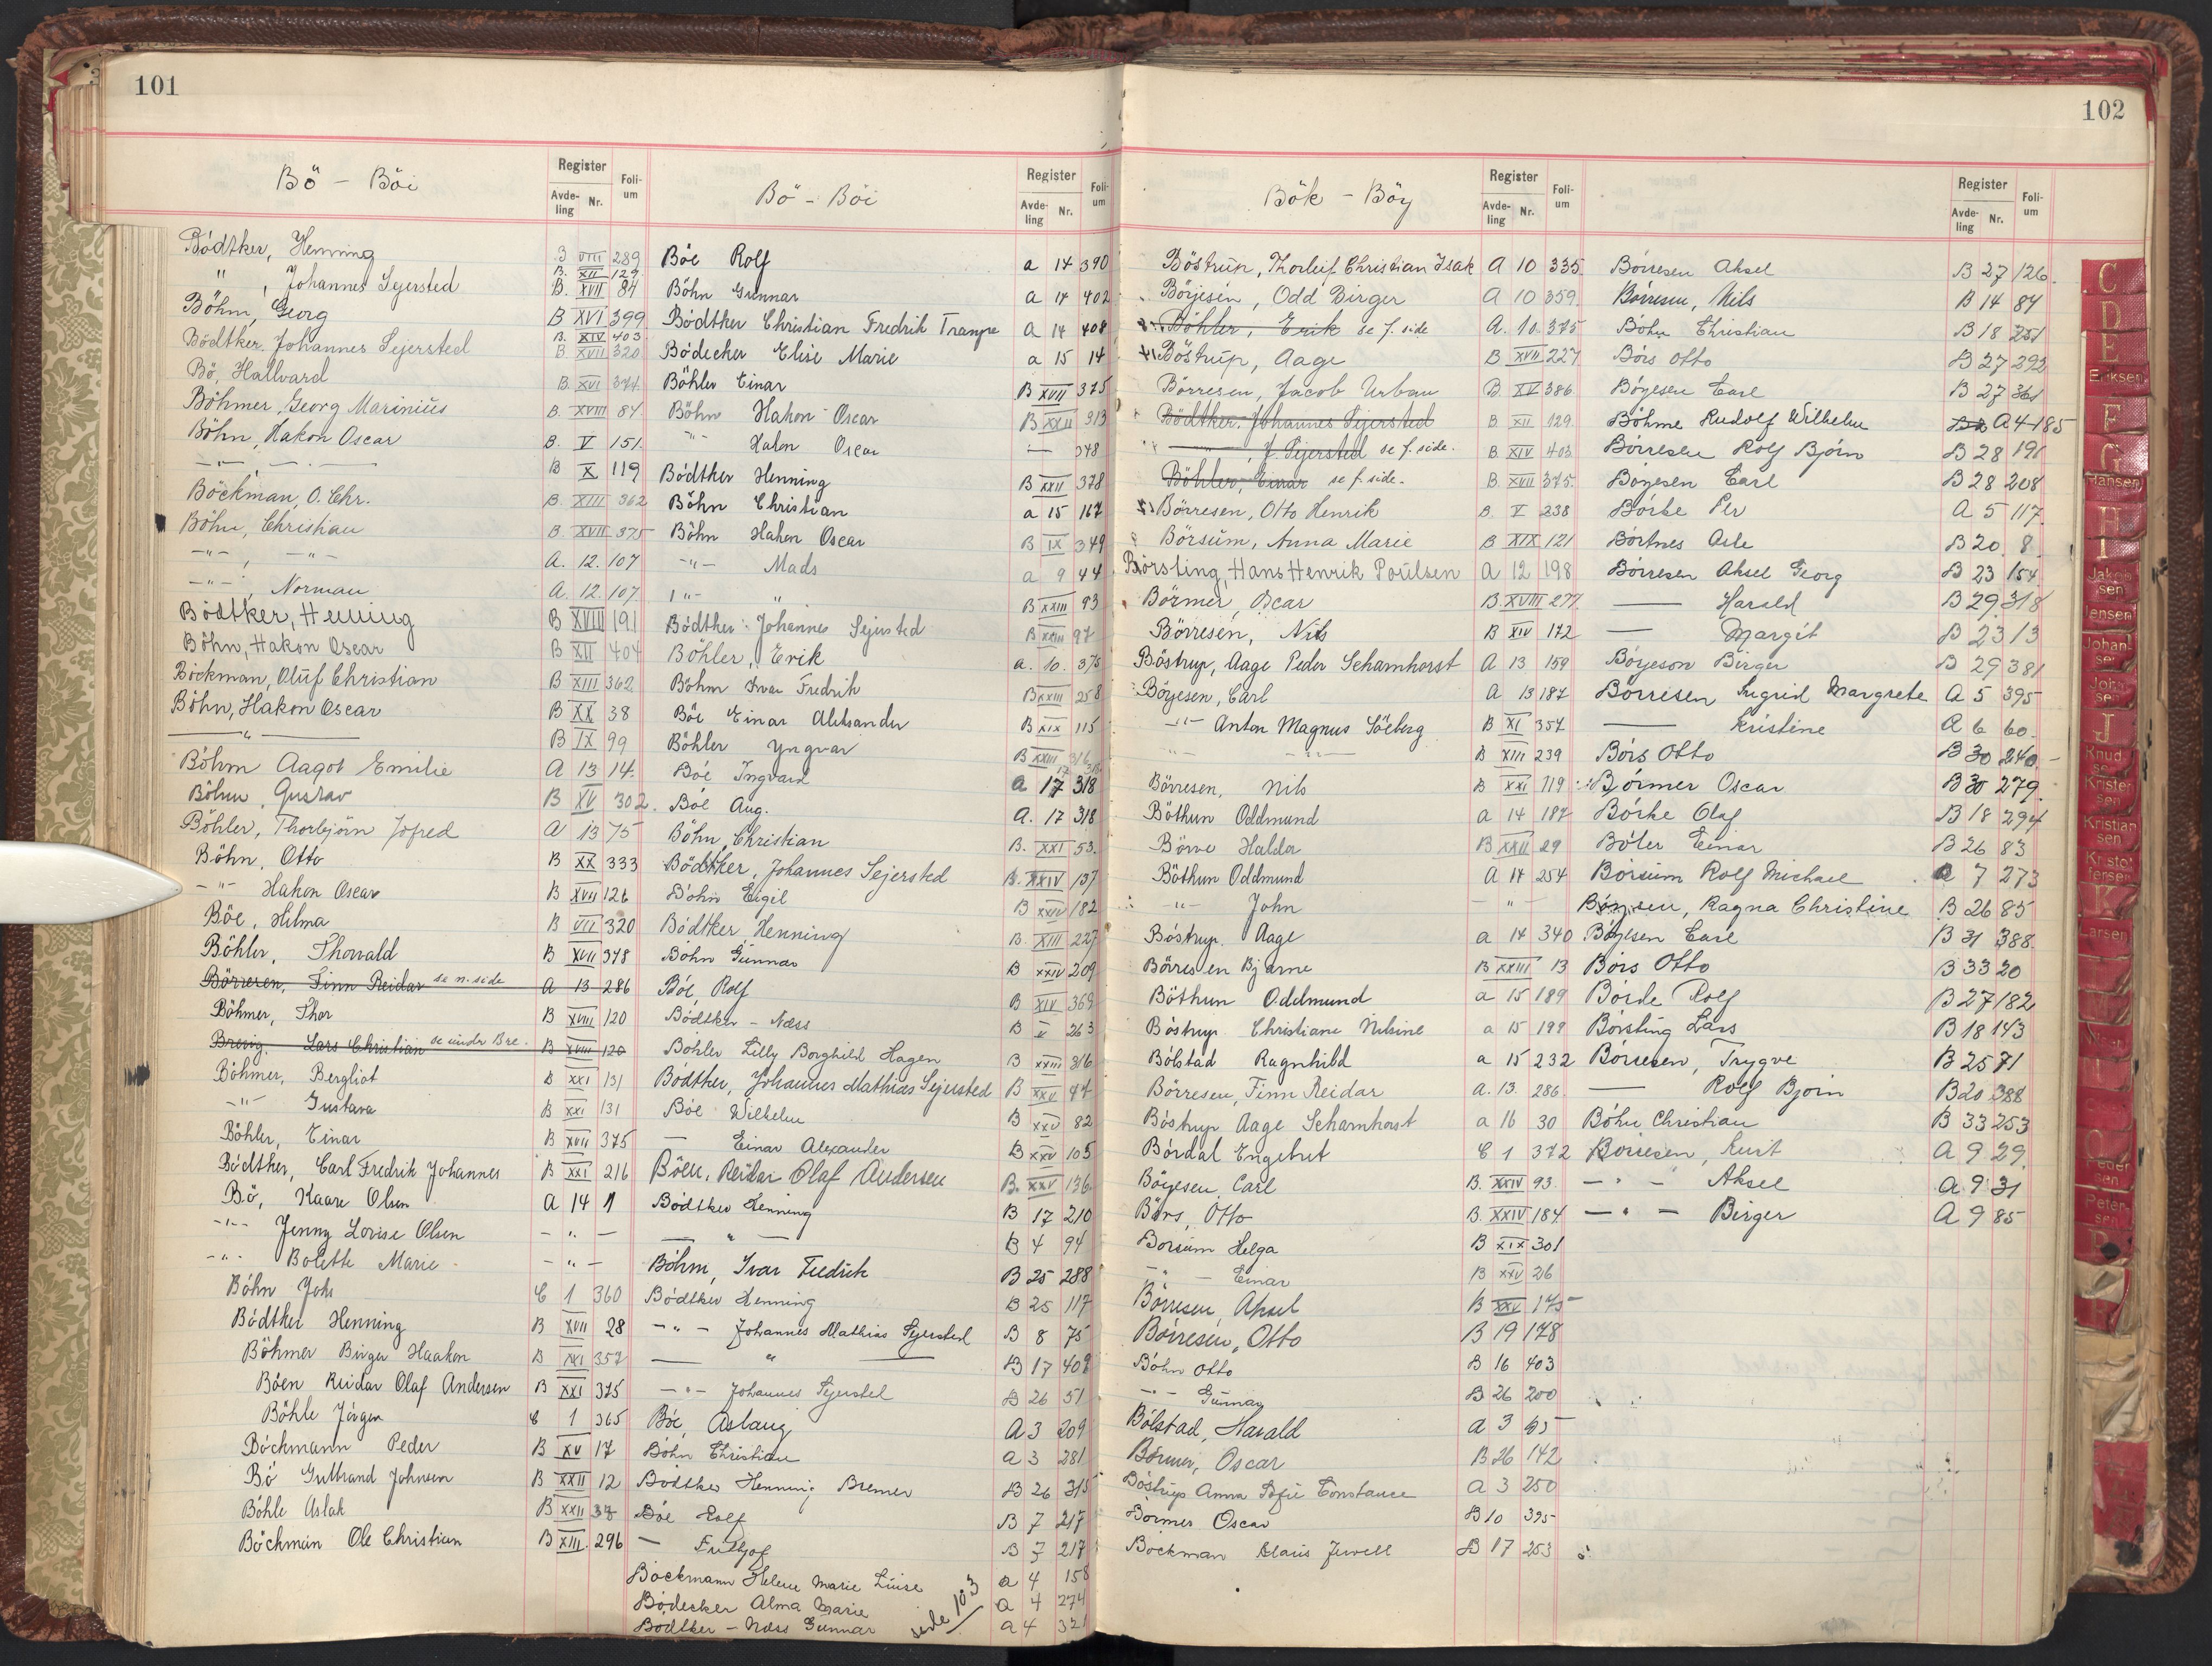 101
Bö - Böi
Register
Avde-ling Nr.
Foli-um
Bödtker, Henning B VIII 289
B. XII 129.
" , Johannes Sejersted B. XVII 84
Böhm, Georg B XVI 399
B. XIV 403
Bödtker. Johannes Sejersted B. XVII 320
Bö, Hallvard B. XVI 374
Böhmer, Georg Marinius B. XVIII 84
Böhn, Hakon Oscar B. V 151.
—"— — " — B X 119
Böckman, O. Chr. B. XIII 362
Böhn, Christian B. XVII 375
—"—, —"— A. 12. 107
—"—, Norman A. 12. 107
Bödtker, Henning B XVIII 191
Böhn, Hakon Oscar B XII 404
Böckman, Oluf Christian B XIII 362
Böhn, Hakon Oscar B XX 38
—"— B IX 99
Böhm Aagot Emilie A 13 14.
Böhm, Gustav B XV 302.
Böhler, Thorbjörn Jofred A 13 75
Böhn, Otto B XX 333
—"— Hakon Oscar B XVII 126
Böe, Hilma B VII 320
Böhler, Thorvald B XVII 348
Börresen, Finn Reidar se n. side A 13 286
Böhmer, Thor B XVIII 120
Brevig. Lars Christian se under Bre. B XVIII 120
Böhmer, Bergliot B XXI 131
—"— Gustava B XXI 131
Böhler, Einar B XVII 375
Bödtker, Carl Fredrik Johannes B XXI 216
Bö, Kaare Olsen A 14 1
—"— Jenny Lovise Olsen — " —
—"— Bolette Marie — " —
Böhn Johs C 1 360
Bödtker Henning B XVII 28
Böhmer Birger Haakon B XXI 357
Böen Reidar Olaf Andersen B XXI 375
Böhle Jörgen C 1 365
Böckmann Peder B XV 17
Bö Gulbrand Johnsen B XXII 12
Böhle Aslak B XXII 37
Böckman Ole Christian B XIII. 296
Bö - Böi
Register
Avde-ling Nr.
Foli-um
Böe Rolf a 14 390
Böhn Gunnar a 14 402
Bödtker Christian Fredrik Trampe a 14 408
Bödecker Elise Marie a 15 14
Böhler Einar B XVII 375
Böhn Hakon Oscar B XXII 313
—"— Hakon Oscar — 348
Bödtker Henning B XXII 378
Böhn Christian a 15 167
Böhn Hakon Oscar B IX 349
—"— Mads a 9 44
—"— " B XXIII 93
Bödtker Johannes Sejersted B XXIII 97
Böhler, Erik a. 10. 375
Böhm Ivar Fredrik B XXIII 258
Böe Einar Aleksander B XIX 115
Böhler Yngvar B XXIII 316
Böe Ingvard a 17 318
Böe Aug. A. 17 318
Böhn, Christian B. XXI 53.
Bödtker, Johannes Sejersted B. XXIV 137
Böhn Eigil B XXIV 182
Bödtker Henning B XIII 227
Böhn Gunnar B XXIV 209
Böe, Rolf B XIV 369
Bödtker - Næss B V 263
Böhler Lilly Borghild Hagen B XXIII 316
Bödtker, Johannes Mathias Sejersted B XXV 44
Böe Wilhelm B XXV 82
— Einar Alexander B XXV 105
Böen, Reidar Olaf Andersen B. XXV 136
Bödtker Henning B 17 210
— " — B 4 94
Böhm, Ivar Fredrik B 25 288
Bödtker Henning B 25 117
—"— Johannes Mathias Sejersted B 8 75
— " — B 17 402
—"— Johannes Sejersted B 26 51
Böe, Aslaug A 3 209
Böhn Christian a 3 281
Bödtker Henning Bremer B 26 315
Böe Rolf B 7 217
— Fridtjof B 7 217
Böckmann Helene Marie Luise a 4 158
Bödecker Alma Marie a 4 274
Bödtker - Næss Gunnar a 4 321
side 103
102
Bök - Böy
Register
Avde-ling Nr.
Foli-um
Böstrup, Thorleif Christian Isak A 10 335
Börjesen, Odd Birger A 10 359
Böhler, Erik se f. side A. 10. 375
Böstrup, Aage B XVII 227
Börresen, Jacob Urban B. XV 386
Bödtker. Johannes Sejersted B XII 129.
— " —, J. Sejersted se f. side. B. XIV 403
Böhler, Einar se f. side. B. XVII 375.
Börresen, Otto Henrik B. V 238
Börsum, Anna Marie B XIX 121
Börsting, Hans Henrik Poulsen A 12 198
Börmer, Oscar B. XVIII 277
Börresen, Nils B XIV 172
Böstrup, Aage Peder Scharnhorst A 13 159
Böyesen, Carl A 13 187
—"— Anton Magnus Söeberg B XI 357
—"— —"— B XIII 239
Börresen, Nils B XXI 119
Böthun Oddmund a 14 187
Börve Haldor B XXII 29
Böthun Oddmund A 14 254
—"— John — " —
Böstrup. Aage a 14 340
Börresen Bjarne B XXIII 13
Böthun Oddmund a 15 189
Böstrup Christiane Nilsine a 15 199
Bölstad Ragnhild a 15 232
Börresen, Finn Reidar A. 13. 286
Böstrup Aage Scharnhorst a 16 30
Bördal Engebret C 1 372
Böyesen, Carl B. XXIV 93
Börs, Otto B. XXIV 184
Börsum Helga B XIX 301
—"— Einar B XXV 26
Börresen, Aksel B XXV 175
Börresen, Otto B 19 178
Böhn Otto B 16 403
—"— Gunnar B 26 200
Bölstad, Harald a 3 65
Börmer, Oscar B 26 142
Böstrup Anna Sofie Constance a 3 250
Börmer Oscar B 10 395
Böckman Claus Jewell B 17 253
Register
Avde-ling Nr.
Foli-um
Börresen Aksel B 27 126.
Börresen, Nils B 14 84
Böhn Christian B 18 251
Börs Otto B 27 292
Böyesen Carl B 27 361
Böhme Rudolf Wilhelm A 4 185
Börresen Rolf Björn B 28 191
Böyesen Carl B 28 208
Börke Per A 5 117.
Börtnes Asle B 20 8
Börresen Aksel Georg B 23 154
— Harald B 29 318
— Margit B 23 13
Böyeson Birger B 29 381
Börresen Sigrid Margrete A 5 395
— Kristine A 6 60.
Börs Otto B 30 240
Börmer Oscar B 30 279.
Börke Olaf B 18 294
Böler Einar B 26 83
Börsum Rolf Michael a 7 273
Böyesen, Ragna Christine B 26 85
Böyesen Carl B 31 388
Börs Otto B 33 20
Börde Rolf B 27 182
Börsting Lars B 18 143
Börresen, Trygve B 25 71
— Rolf Björn B 20 388
Böhn Christian B 33 253
Börresen, Kurt A 9 29.
— " — Aksel A 9 31
— " — Birger A 9 85
C
D
E
Eriksen
F
G
Hansen
H
I
Jakob sen
Jensen
Johan sen
John sen
J
Knud sen
Krister sen
Kristian sen
Kristof fersen
K
Larsen
L
Peder sen
Peter sen